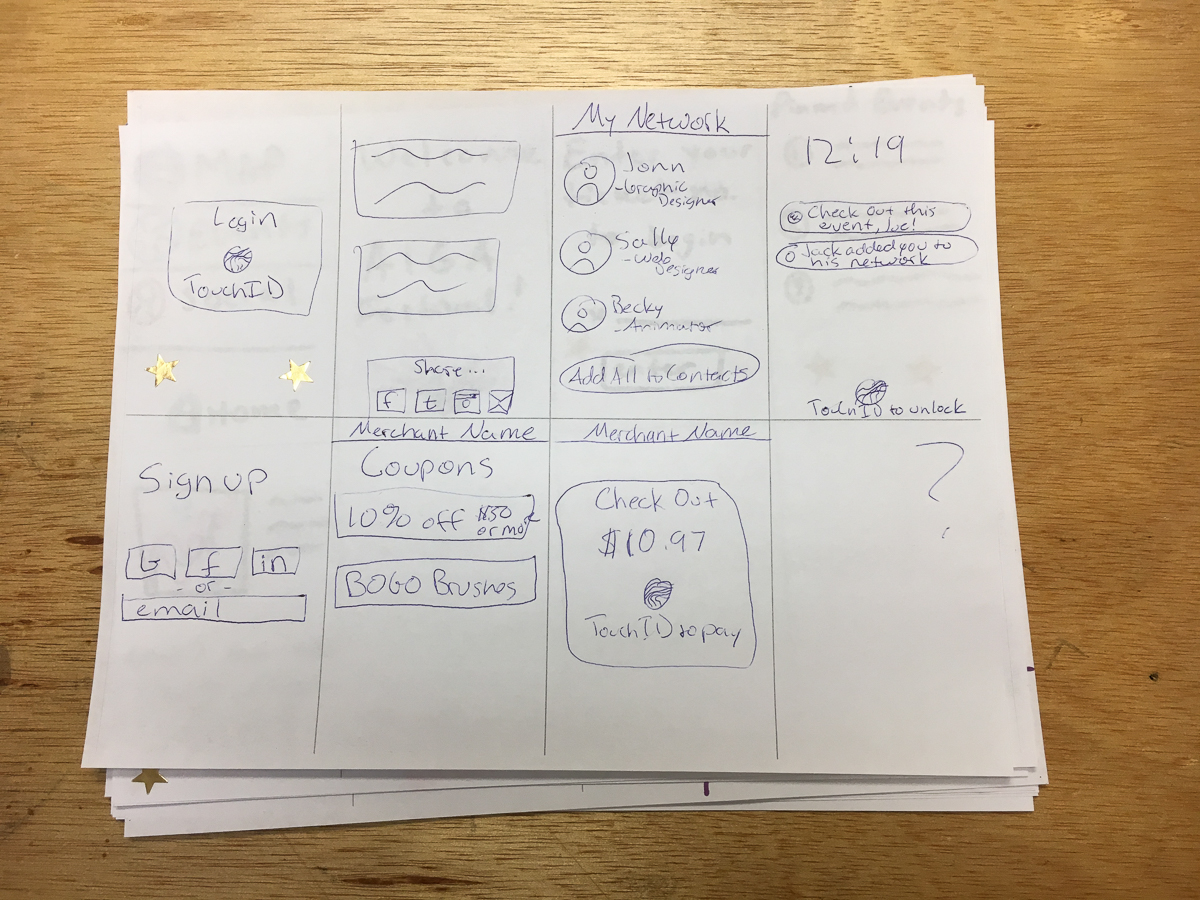 Login
TouchID
Share...
f t
My Network
John
-Graphic
Designer
Sally
-Web
Designer
Becky
-Animator
Add All to Contacts
12:19
Check Out this
event, Joe!
Jack added you to
his network
TouchID to unlock
Sign up
t f in
- or -
email
Merchant Name
Coupons
10% off $50
or more
BOGO Brushes
Merchant Name
Check Out
$10.97
TouchID to pay
?